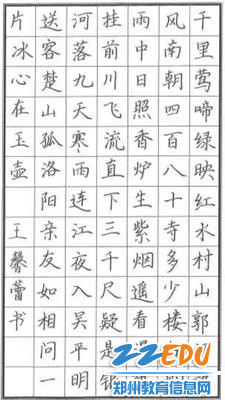 千里莺啼绿映红水村山郭
风南朝四百八十寺多少楼
雨中日照香炉生紫烟遥看
挂前川飞流直下三千尺疑是银
河落九天寒雨连江夜入吴平明
送客楚山孤洛阳亲友如相问一
片冰心在玉壶 王馨蕾书
ZZEDU
郑州教育信息网